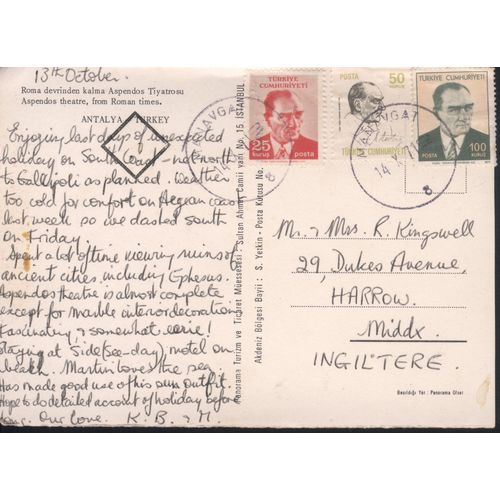 13th October.
Roma devrinden kalma Aspendos Tiyatrosu
Aspendos theatre, from Roman times.
ANTALYA TURKEY
Enjoying last day of unexpected
holiday on South Coast - not north
to Gallipoli as planned. Weather
too cold for comfort on Aegean coast
last week so we dashed south
on Friday.
Spent a lot of time viewing ruins of
ancient cities including Ephesus.
Aspendos theatre is almost complete
except for marble interior decoration.
Fascinating & somewhat eerie!
Staying at Side (see-day) motel on
beach. Martin loves the sea.
Has made good use of his sun outfit.
Hope to do detailed account of holiday before
long. Our love. K. B. & M.
Panorama Turizm ve Ticaret Müessesesi : Sultan Ahmet Camii yanı No. 15 İSTANBUL
Akdeniz Bölgesi Bayii : S. Yetkin - Posta Kutusu No.
TÜRKİYE
CUMHURİYETİ
25
kuruş posta
POSTA 50
KURUŞ
TÜRKİYE CUMHURİYETİ
TÜRKİYE CUMHURİYETİ
POSTA 100
KURUŞ
MANAVGAT
8
MANAVGAT
14
8
Mr. & Mrs. R. Kingswell
29, Dukes Avenue,
HARROW.
Middx.
INGILTERE.
Basıldığı Yer : Panorama Ofset